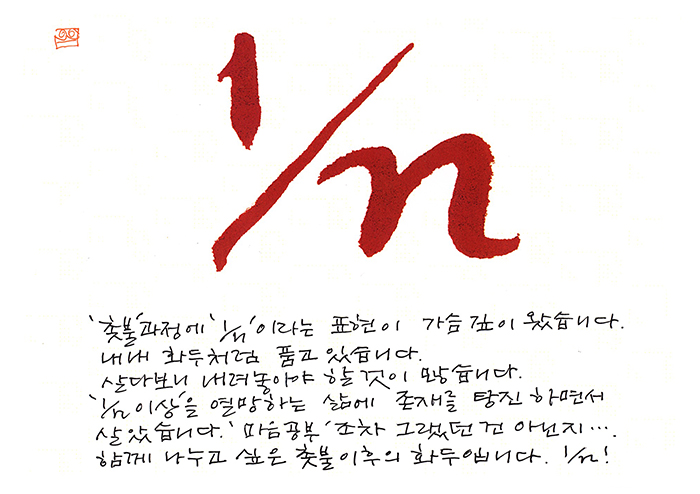 1/n
'촛불'과정에 '1/n'이라는 표현이 가슴깊이 왔습니다.
내내 화두처럼 품고 있습니다.
살다보니 내려놓아야 할 것이 많습니다.
'1/n 이상'을 열망하는 삶에 존재를 탕진 하면서
살았습니다. '마음공부' 조차 그랬던 건 아닌지···.
함께 나누고 싶은 촛불이후의 화두입니다. 1/n!